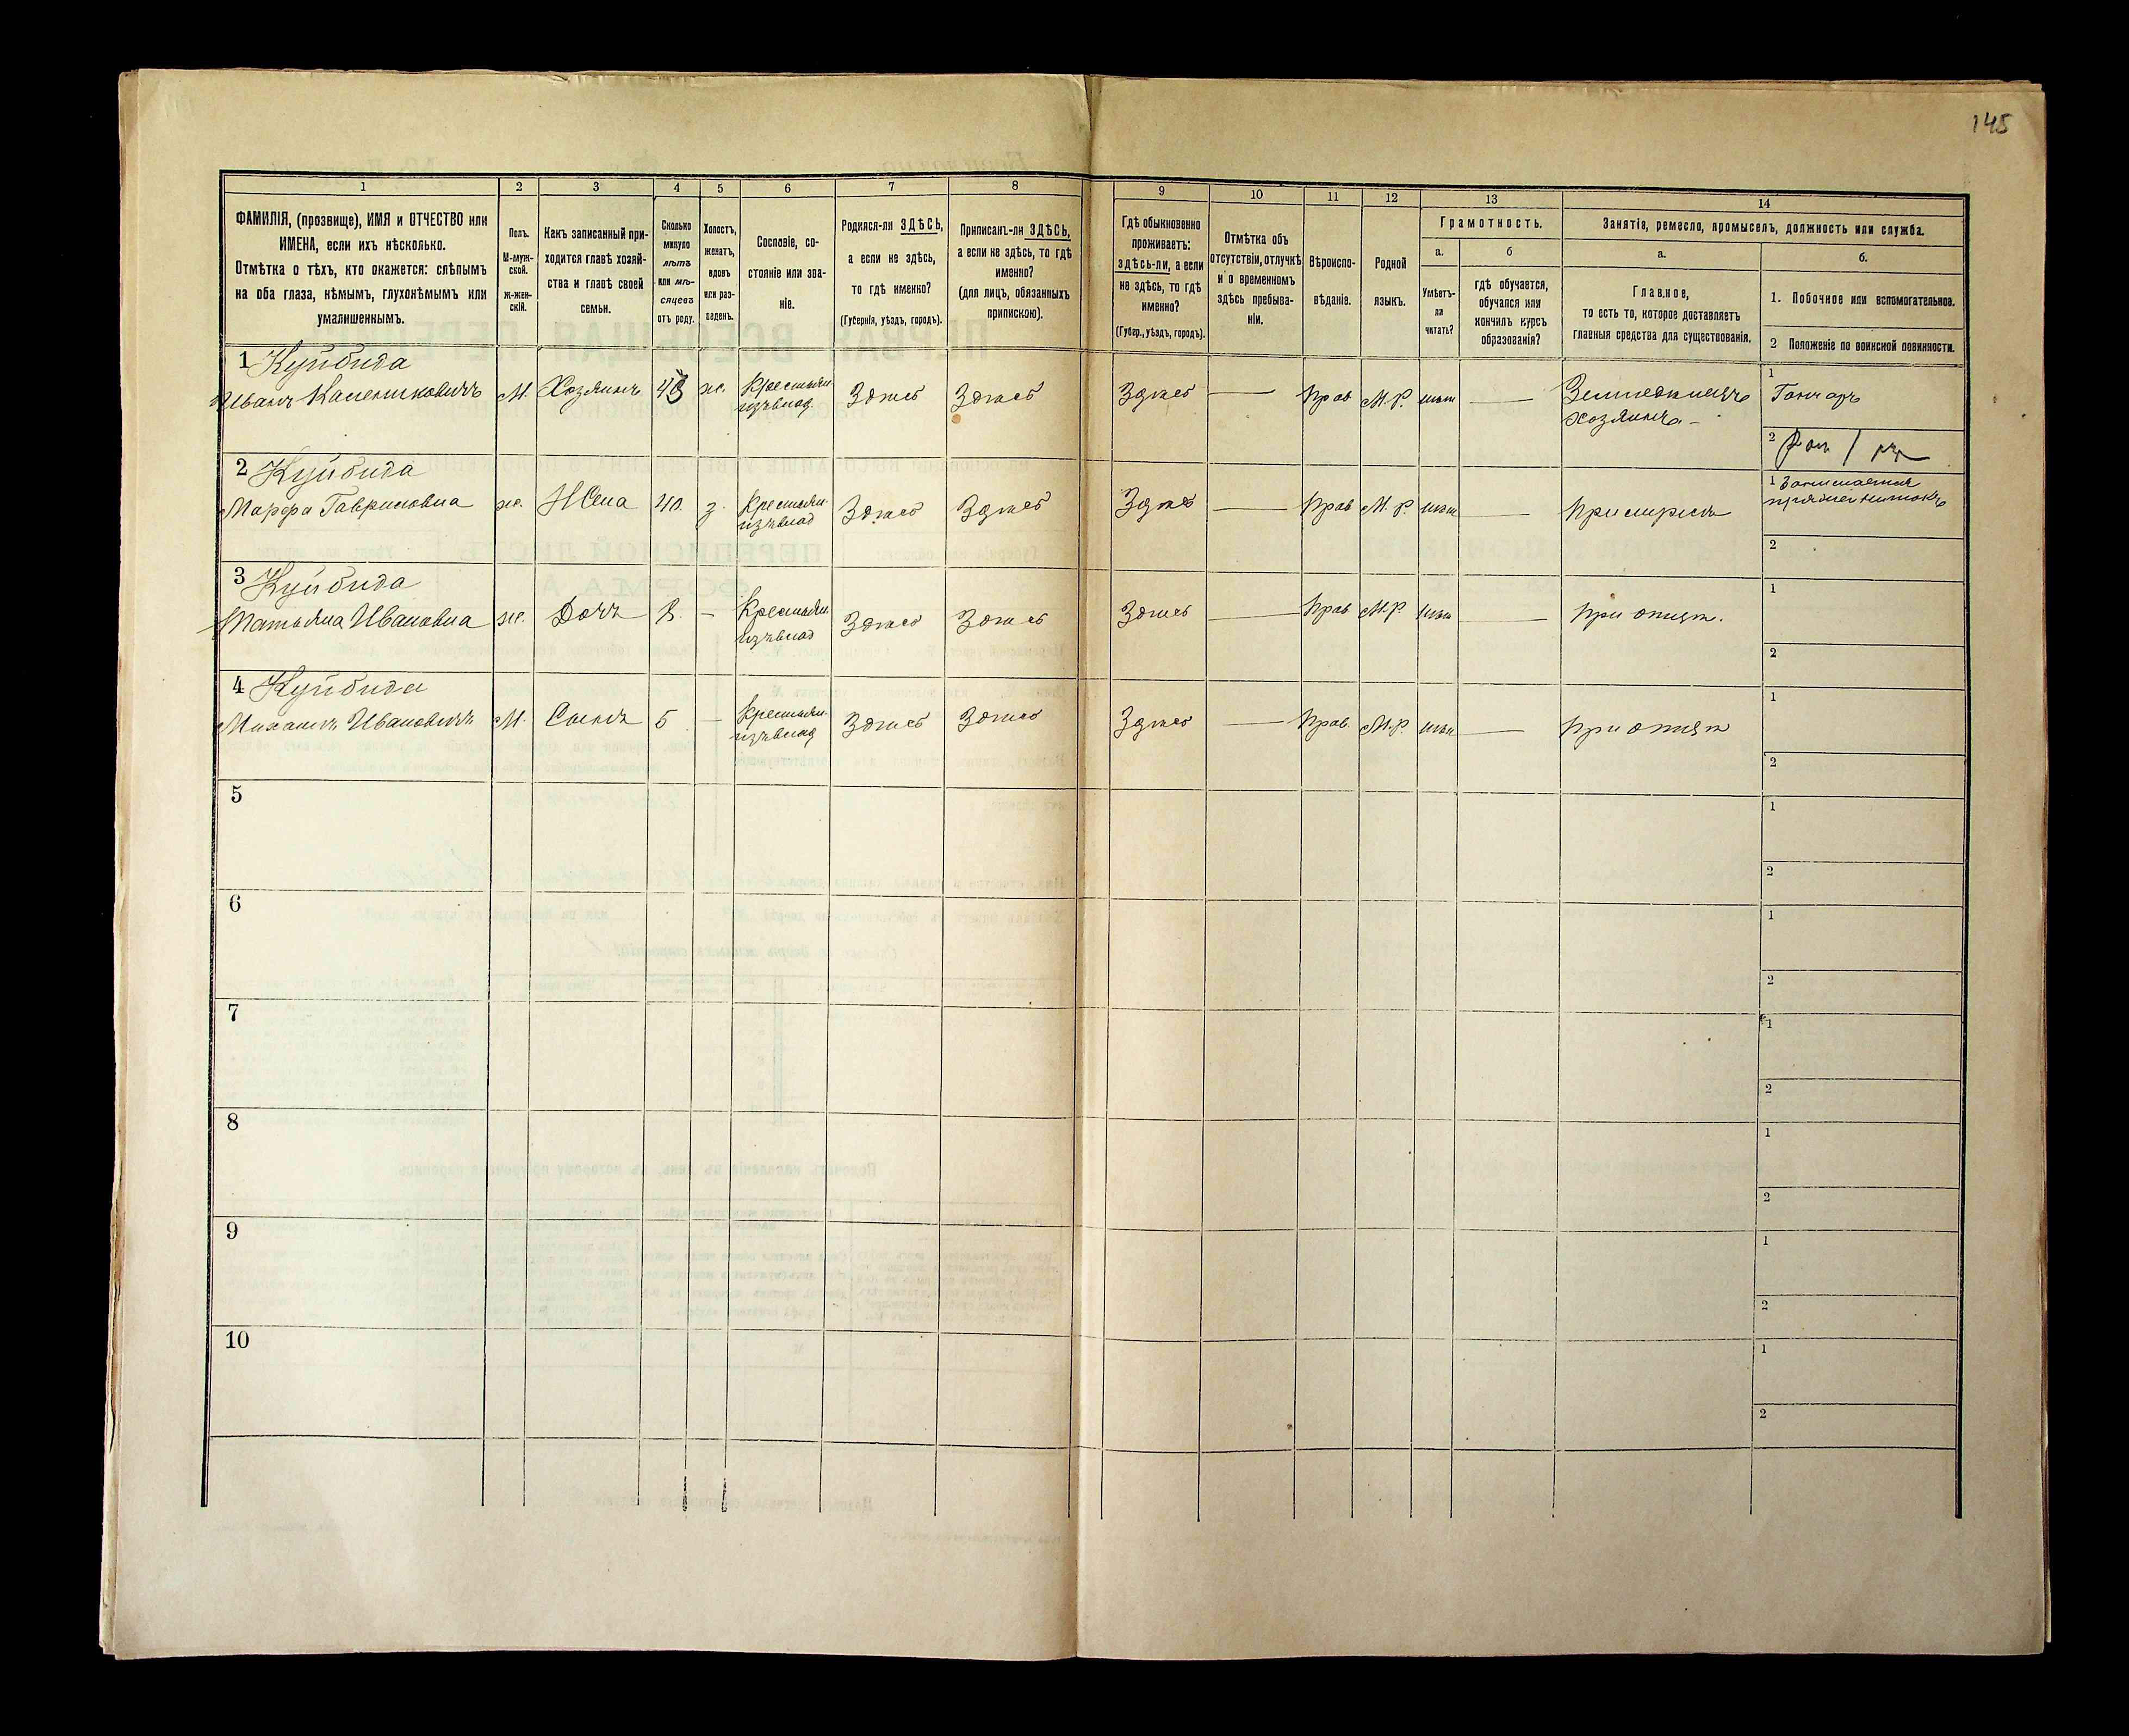 145
1 2 3 4 5 6 7 8 9 10 11 12 13 14
ФАМИЛІЯ, (прозвище), ИМЯ и ОТЧЕСТВО или
ИМЕНА, если ихъ нѣсколько.
Отмѣтка о тѣхъ, кто окажется: слѣпымъ
на оба глаза, нѣмымъ, глухонѣмымъ или
умалишеннымъ.
Полъ.
М-муж-
ской.
Ж-жен-
скій.
Какъ записанный при-
ходится главѣ хозяй-
ства и главѣ своей
семьи.
Сколько
минуло
лѣтъ
или мѣ-
сяцевъ
отъ роду.
Холостъ,
женатъ,
вдовъ
или раз-
веденъ.
Сословіе, со-
стояніе или зва-
ніе.
Родился-ли ЗДѢСЬ,
а если не здѣсь,
то гдѣ именно?
(Губернія, уѣздъ, городъ).
Приписанъ-ли ЗДѢСЬ,
а если не здѣсь, то гдѣ
именно?
(для лицъ, обязанныхъ
припискою).
Гдѣ обыкновенно
проживаетъ:
здѣсь-ли, а если
не здѣсь, то гдѣ
именно?
(Губер., уѣздъ, городъ).
Отмѣтка объ
отсутствіи, отлучкѣ
и о временномъ
здѣсь пребыва-
ніи.
Вѣроиспо-
вѣданіе.
Родной
языкъ.
Грамотность.
а.
Умѣетъ-
ли
читать?
б
гдѣ обучается,
обучался или
кончилъ курсъ
образованія?
Занятіе, ремесло, промыселъ, должность или служба.
а.
Главное,
то есть то, которое доставляетъ
главныя средства для существованія.
б.
1. Побочное или вспомогательное.
2 Положеніе по воинской повинности.
1 Куйбида
Иванъ Калениковичъ М. Хозяинъ 43 ж. Крестьян. Здѣсь Здѣсь Здѣсь — Прав М.Р. нѣт — Земледѣлецъ 1 Гончаръ
изъ влад. хозяинъ –
2
2 Куйбида
Марфа Гавриловна ж. Жена 40. з. Крестьян. Здѣсь Здѣсь Здѣсь — Прав М.Р. нѣт — При мужѣ 1 Занимается
изъ влад
2
3 Куйбида
Татьяна Ивановна ж. Дочь 8. – Крестьян. Здѣсь Здѣсь Здѣсь — Прав М.Р. нѣт — При отцѣ. 1
изъ влад
2
4 Куйбида
Михаилъ Ивановичъ М. Сынъ 5 – Крестьян. Здѣсь Здѣсь Здѣсь — Прав. М.Р. нѣт — При отцѣ 1
изъ влад
2
5 1
2
6 1
2
7 1
2
8 1
2
9 1
2
10 1
2